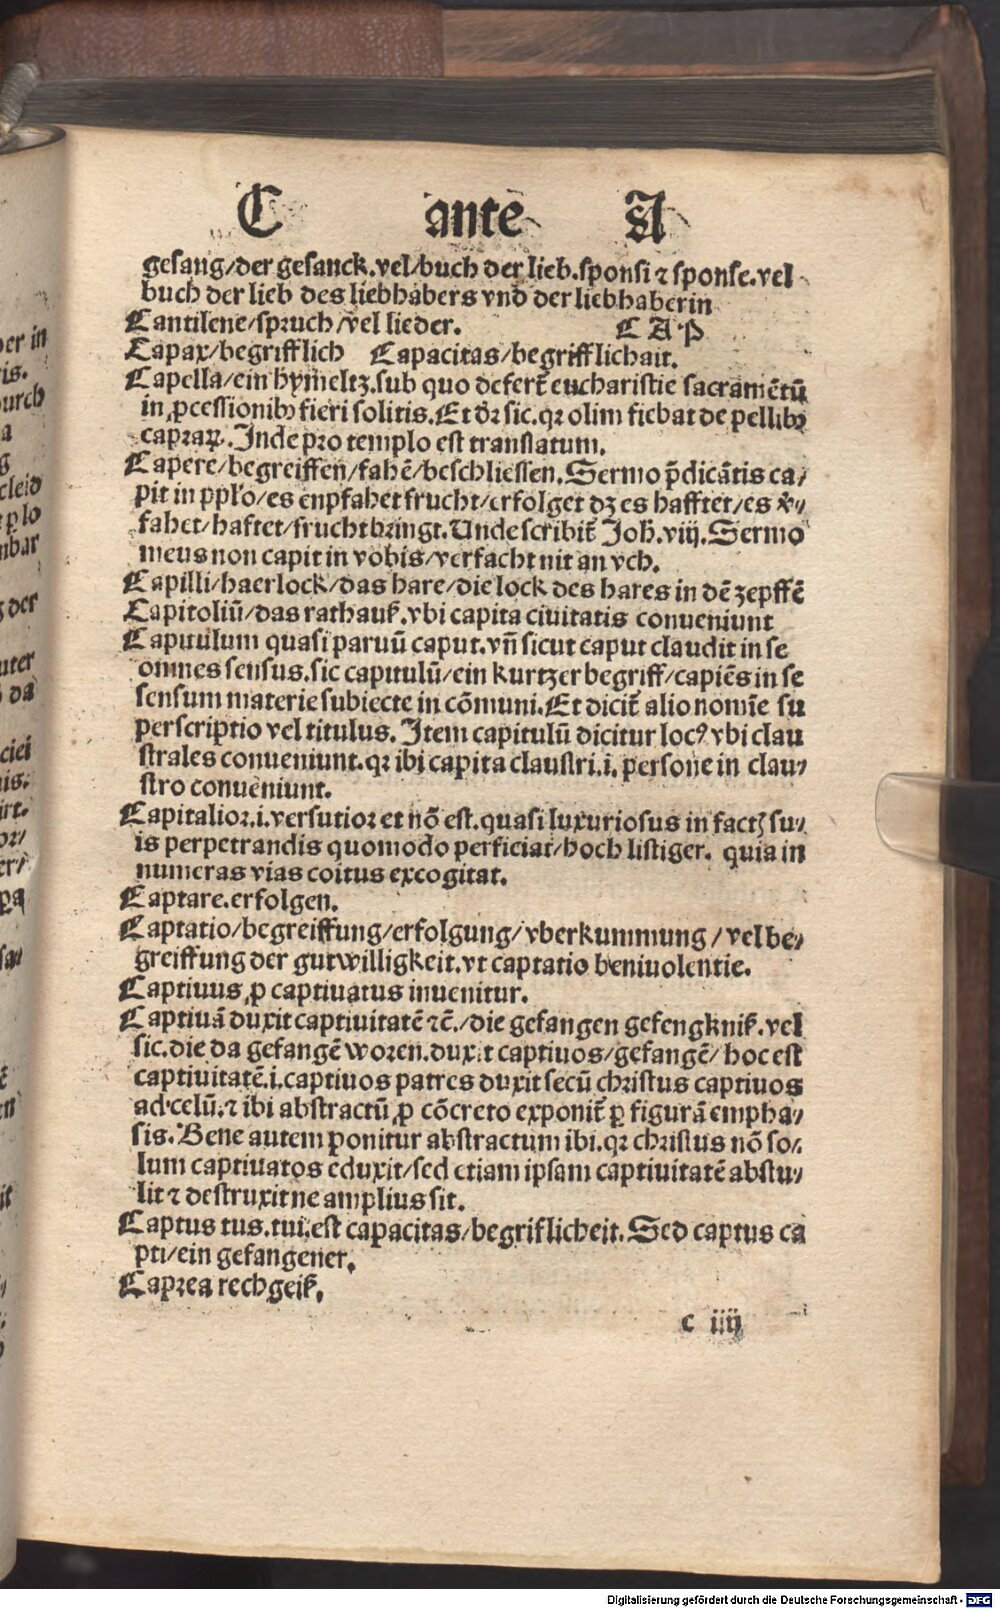 C ante A
gesang/der gesanck.vel/buch der lieb.sponsi ⁊ sponse.vel
buch der lieb des liebhabers vnd der liebhaberin
Cantilene/spruch/vel lieder. CAP
Capax/begrifflich Capacitas/begrifflichait.
Capella/ein hymeltz.sub quo defert̃ eucharistie sacramẽtũ
in ꝓcessionibꝰ fieri solitis.Et dr̃ sic.qꝛ olim fiebat de pellibꝰ
capraꝝ. Inde pro templo est translatum.
Capere/begreiffen/fahẽ/beschliessen.Sermo p̃dicãtis ca/
pit in ppl̃o/es enpfahet frucht/erfolget dz es hafftet/es v̾/
fahet/haftet/frucht bringt.Unde scribit̃ Joh̃.viij.Sermo
meus non capit in vobis/verfacht nit an vch.
Capilli/haerlock/das hare/die lock des hares in dẽ zepffẽ
Capitoliũ/das rathauß.vbi capita ciuitatis conueniunt
Capitulum quasi paruũ caput.vñ sicut caput claudit in se
omnes sensus.sic capitulũ/ein kurtzer begriff/capiẽs in se
sensum materie subiecte in cõmuni.Et dicit̃ alio nomĩe su
perscriptio vel titulus. Item capitulũ dicitur locꝰ vbi clau
strales conueniunt.qꝛ ibi capita claustri.i.persone in clau/
stro conueniunt.
Capitalior.i.versutior et nõ est.quasi luxuriosus in factꝭ su/
is perpetrandis quomodo perficiat/hoch listiger. quia in
numeras vias coitus excogitat.
Captare.erfolgen.
Captatio/begreiffung/erfolgung/vberkummung/vel be/
greiffung der gutwilligkeit.vt captatio beniuolentie.
Captiuus ꝓ captiuatus inuenitur.
Captiuã duxit captiuitatẽ ⁊c̃./die gefangen gefengkniß.vel
sic.die da gefangẽ woren.duxit captiuos/gefangẽ/hoc est
captiuitatẽ.i.captiuos patres duxit secũ christus captiuos
ad celũ.⁊ ibi abstractũ ꝓ cõcreto exponit̃ ꝑ figurã empha/
sis. Bene autem ponitur abstractum ibi.qꝛ christus nõ so/
lum captiuatos eduxit/sed etiam ipsam captiuitatẽ abstu/
lit ⁊ destruxit ne amplius sit.
Captus tus.tui.est capacitas/begriflicheit.Sed captus ca
pti/ein gefangener.
Caprea rechgeiß.
c iiij
Digitalisierung gefördert durch die Deutsche Forschungsgemeinschaft - DFG